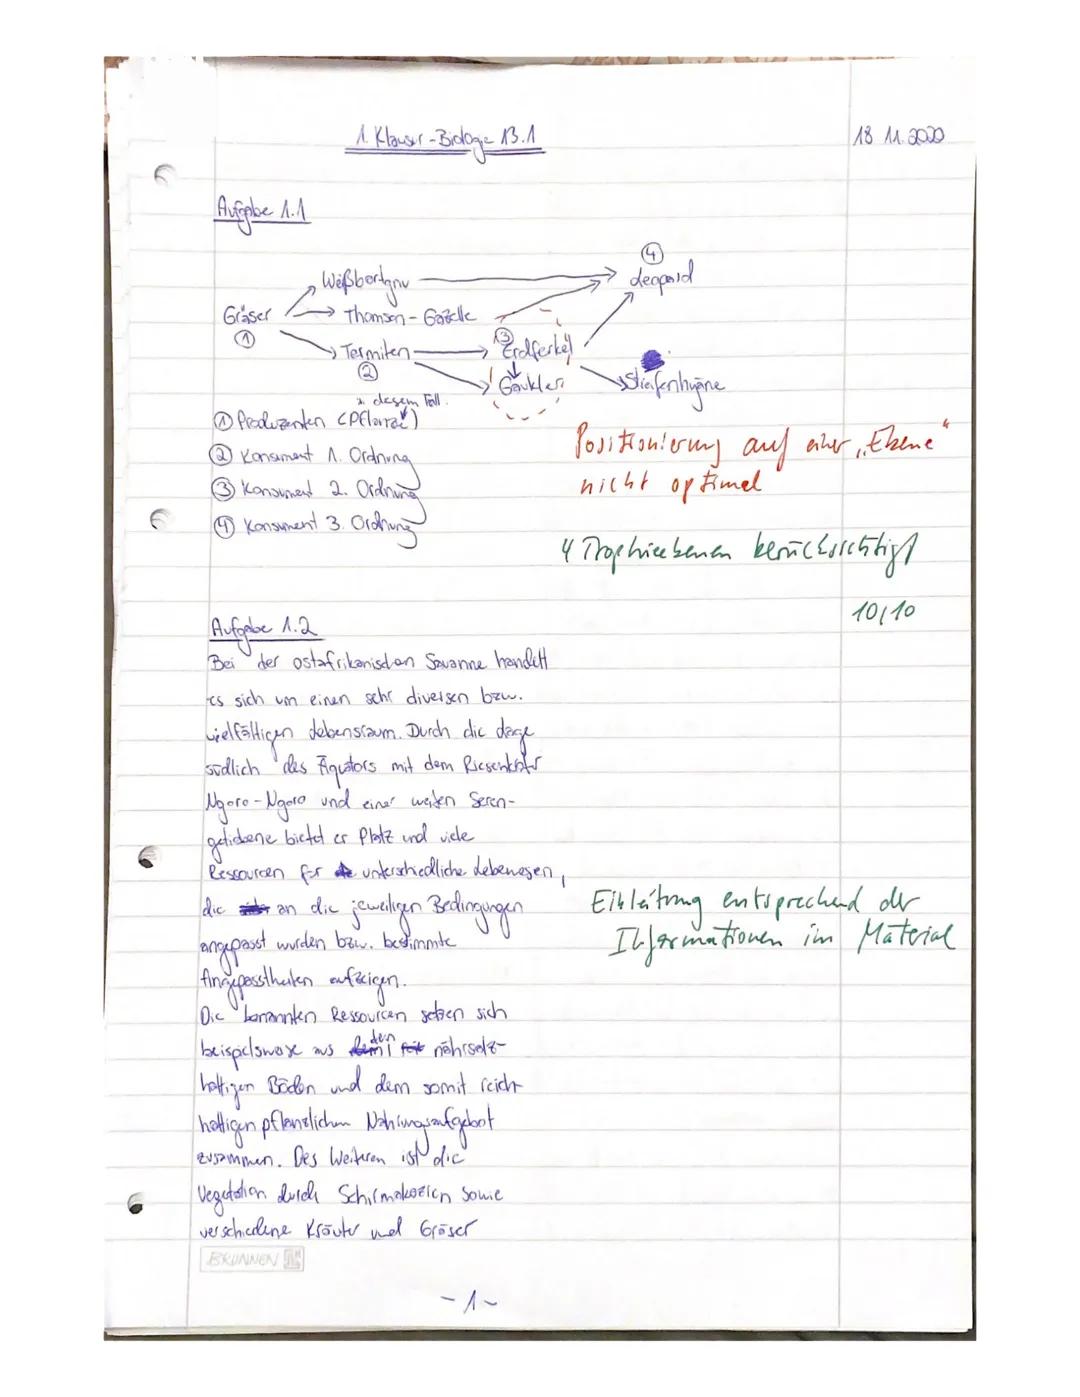 1. Klausur - Biologie 13.1
18.11.2020
Aufgabe 1.1
4
Weißbartgnu
Leopard
Gräser
Thomson - Gazelle
1
3
Termiten
Erdferkel
2
Gaukler
Streifenhyäne
in diesem Fall
1 Produzenten (Pflanze)
2 Konsument 1. Ordnung
3 Konsument 2. Ordnung
4 Konsument 3. Ordnung
Positionierung auf einer „Ebene“
nicht optimal
4 Trophieebenen berücksichtigt
10/10
Aufgabe 1.2
Bei der ostafrikanischen Savanne handelt
es sich um einen sehr diversen bzw.
vielfältigen Lebensraum. Durch die Lage
südlich des Äquators mit dem Riesenkrater
Ngoro-Ngoro und einer weiten Seren-
getiebene bietet er Platz und viele
Ressourcen für unterschiedliche Lebewesen,
die an die jeweiligen Bedingungen
angepasst wurden bzw. bestimmte
Angepasstheiten aufzeigen.
Einleitung entsprechend der
Informationen im Material
Die benannten Ressourcen setzen sich
beispielsweise aus den nährsalz-
haltigen Böden und dem somit reich
haltigen pflanzlichen Nahrungsaufgebot
zusammen. Des Weiteren ist die
Vegetation durch Schirmakazien sowie
verschiedene Kräuter und Gräser
BRUNNEN
- 1 -